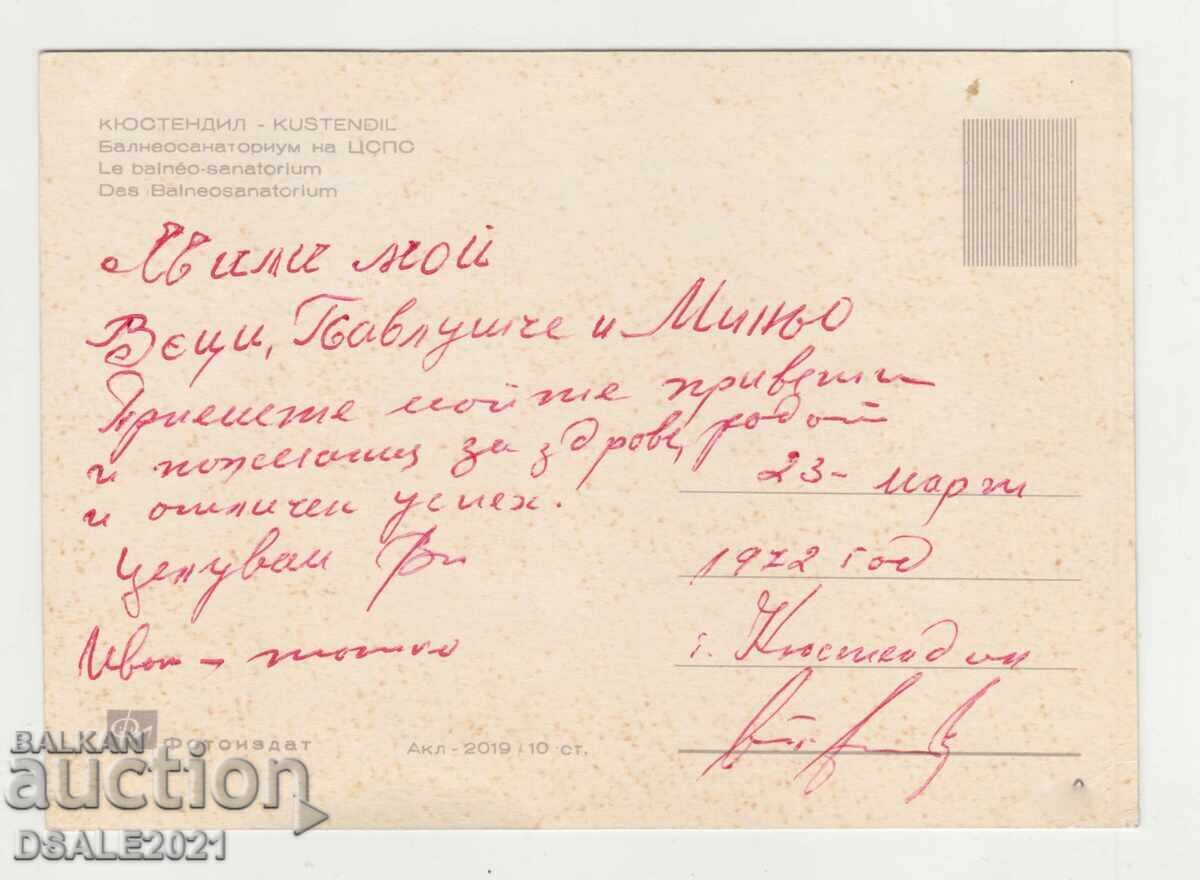 КЮСТЕНДИЛ - KUSTENDIL
Балнеосанаториум на ЦСПС
Le balnéo-sanatorium
Das Balneosanatorium
Мили мой
Веци, Павлушче и Миньо
Приемете мойте привети
и пожелания за здраве, радост
и отличен успех.
Целувам Ви
Иван - татко
23 - март
1972 год
г. Кюстендил
Фотоиздат
Акл - 2019 10 ст.
BALKAN
auction
DSALE2021